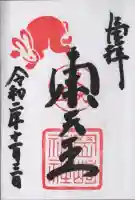 奉拝
東天王
令和二年十二月三日